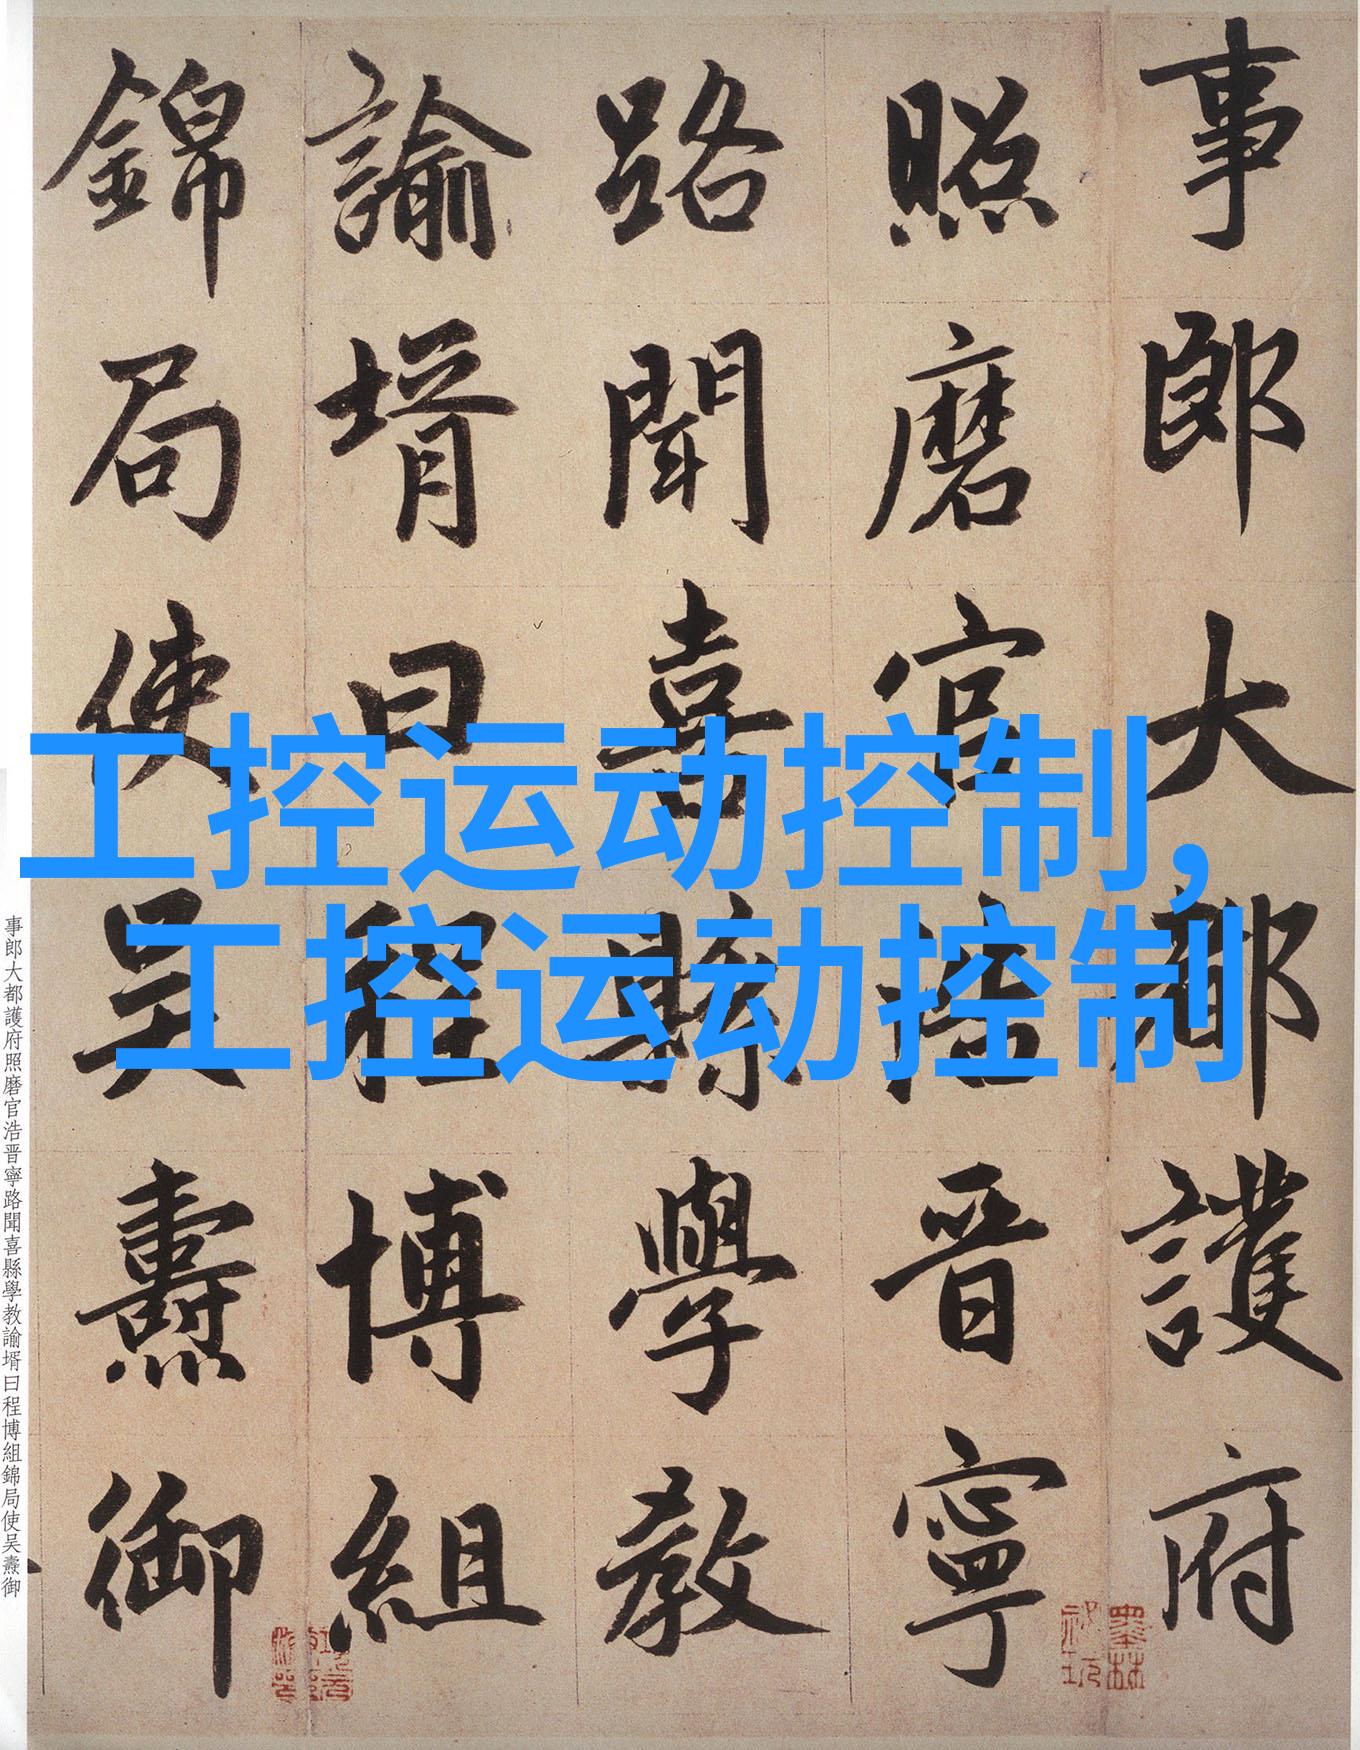 事郎大都護府
照磨官浩晋寧
路聞喜縣學教
諭壻曰程博組
錦局使吴燾御
工控运动控制,
工控运动控制
事郎大都護府照磨官浩晋寧路聞喜縣學教諭壻曰程博組錦局使吴燾御